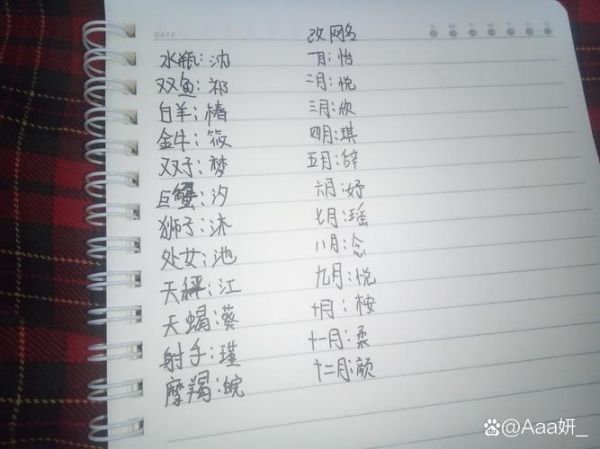 DATE
改网名
水瓶:汋 一月:怡
双鱼:祁 二月:悦
白羊;椿 三月:欣
金牛:筱 四月:琪
双子:梦 五月:辞
巨蟹:汐 六月:妤
狮子:沐 七月:瑶
处女;池 八月:念
天秤:江 九月:悦
天蝎:葵 十月:桉
射手:瑾 十一月:柔
摩羯:皖 十二月:颜
@Aaa妍_